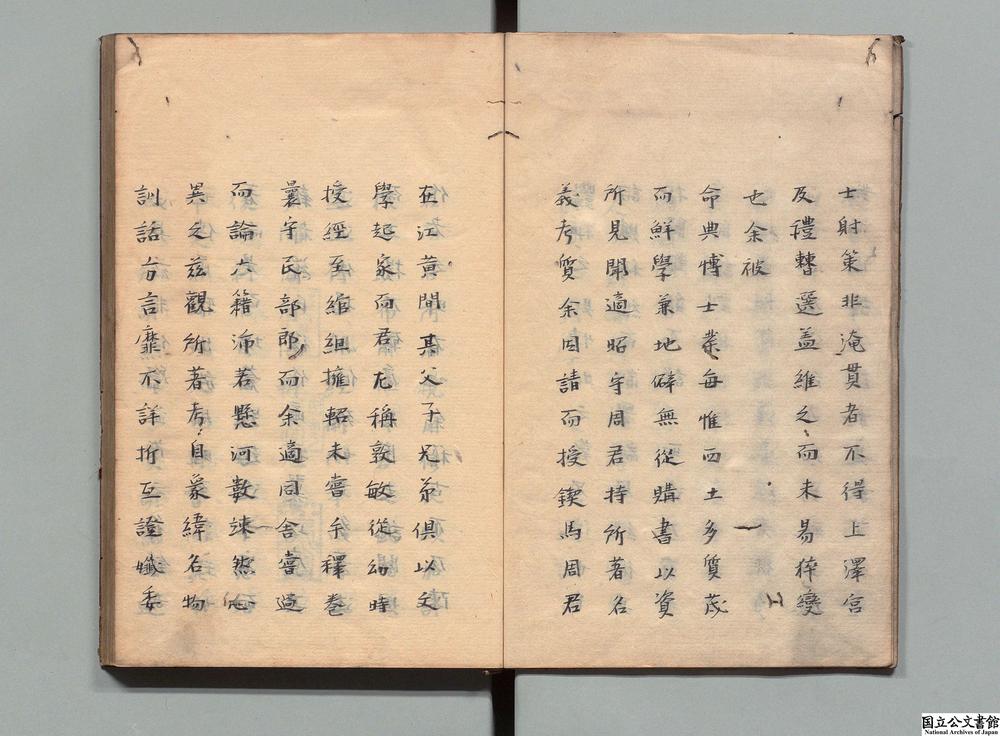 士射策非淹貫者不得上澤宮
反禮轊選盖維之而未易猝變
也余被
命典博士業每惟西土多質茂
而鮮學兼地僻無從購書以資
所見聞適昭守周君持所著名
義考質余因請而授鍥焉周君
在江黄間其父子兄弟俱以文
學起家而君尤稱敦敏從幼時
授經至綰組擁軺未嘗手釋巻
曩守民部郎而余適同舎嘗過
而論六籍沛若懸河數竦然心
異之兹觀所著考自象緯名物
訓詁方言靡不詳折互證孅委
国立公文書館
National Archives of Japan